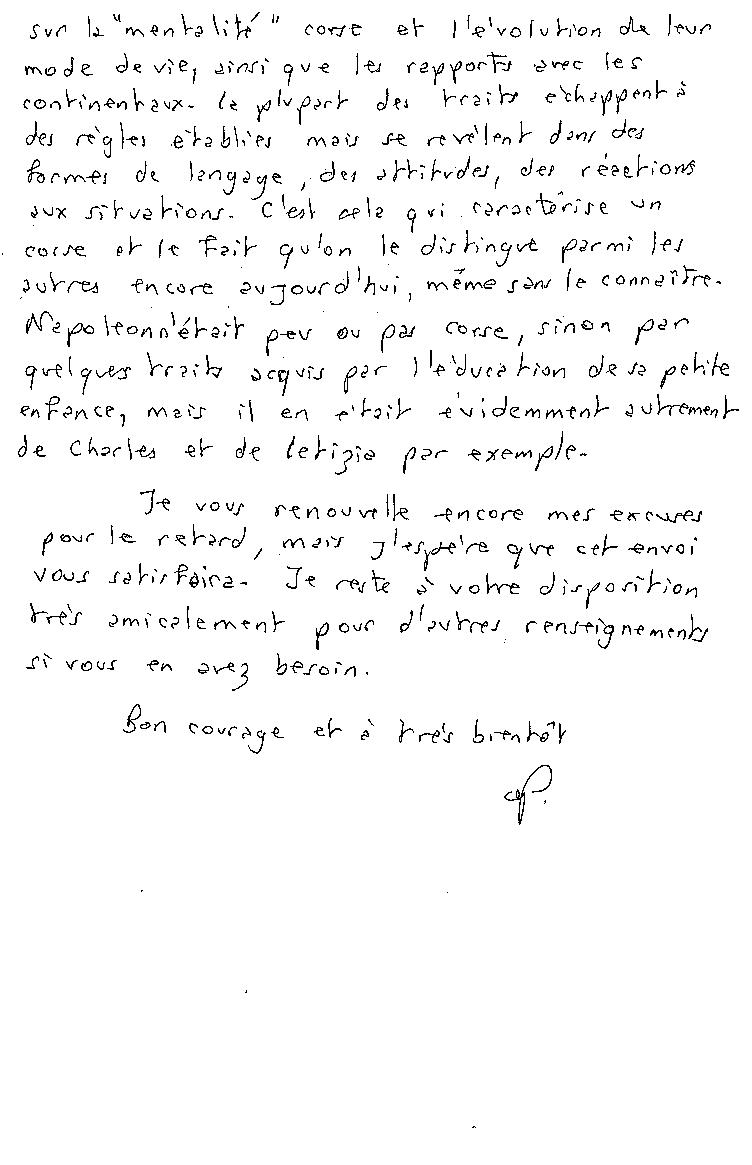 sur la "mentalité" corse et l'évolution de leur
mode de vie, ainsi que les rapports avec les
continentaux. La plupart des traits échappent à
des règles établies mais se revèlent dans des
formes de langage, des attitudes, des réactions
aux situations. C'est cela qui caractérise un
corse et le fait qu'on le distingue parmi les
autres encore aujourd'hui, même sans le connaître.
Napoléon n'était peu ou pas corse, sinon par
quelques traits acquis par l'éducation de sa petite
enfance, mais il en était évidemment autrement
de Charles et de Letizia par exemple.
Je vous renouvelle encore mes excuses
pour le retard, mais j'espère que cet envoi
vous satisfaira. Je reste à votre disposition
très amicalement pour d'autres renseignements
si vous en avez besoin.
Bon courage et à très bientôt